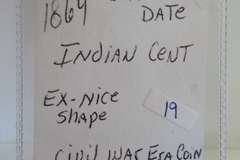 1864
DATE
INDIAN CENT
EX-NICE
SHAPE
19
CIVIL WAR ERA COIN